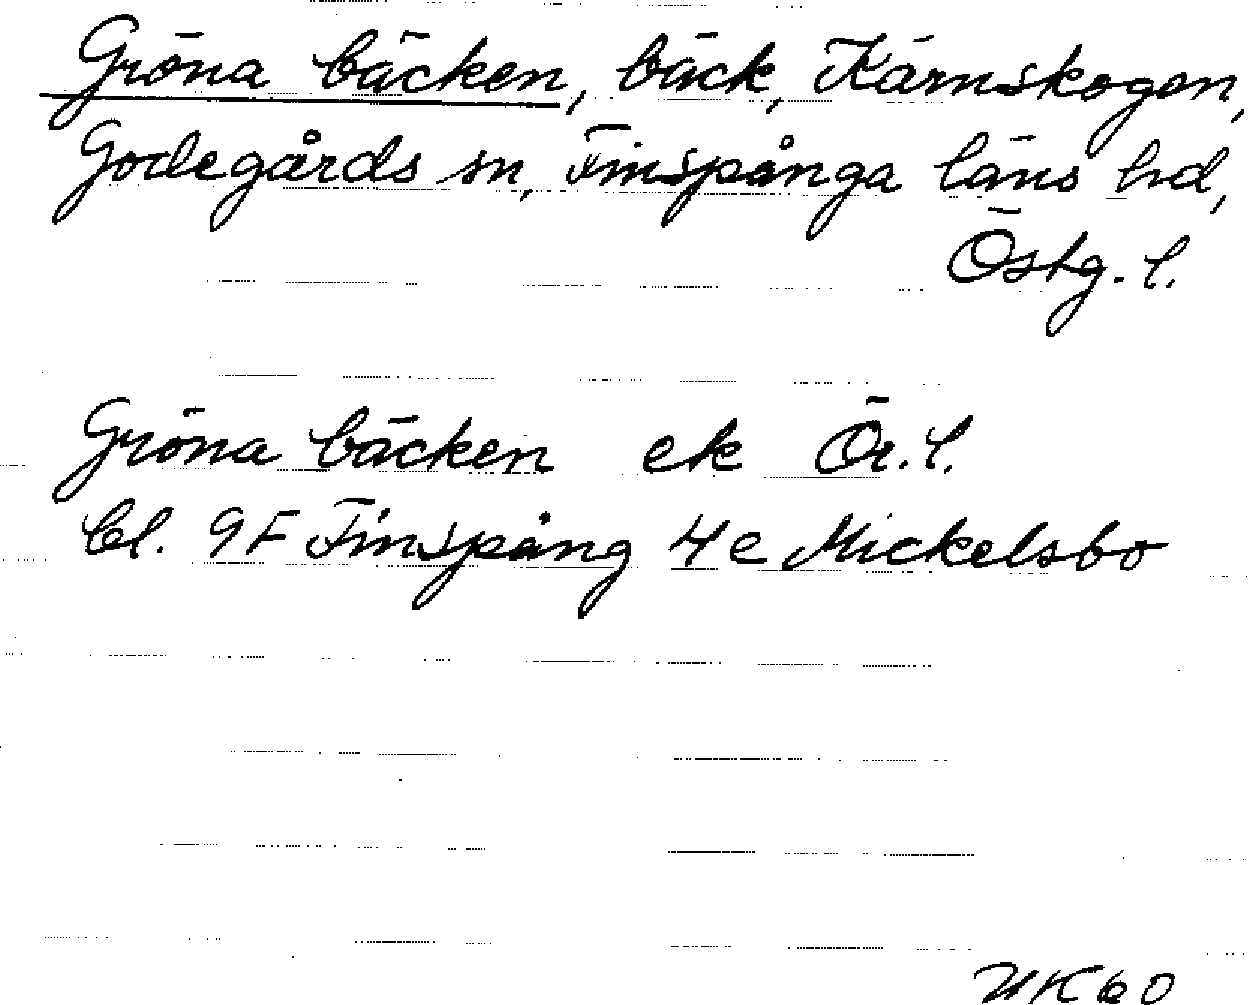 Gröna bäcken, bäck, Kärnskogen,
Godegårds sn, Finspånga läns hd,
Östg. l.
Gröna bäcken ek Ör. l.
bl. 9F Finspång 4e Mickelsbo
UK 60